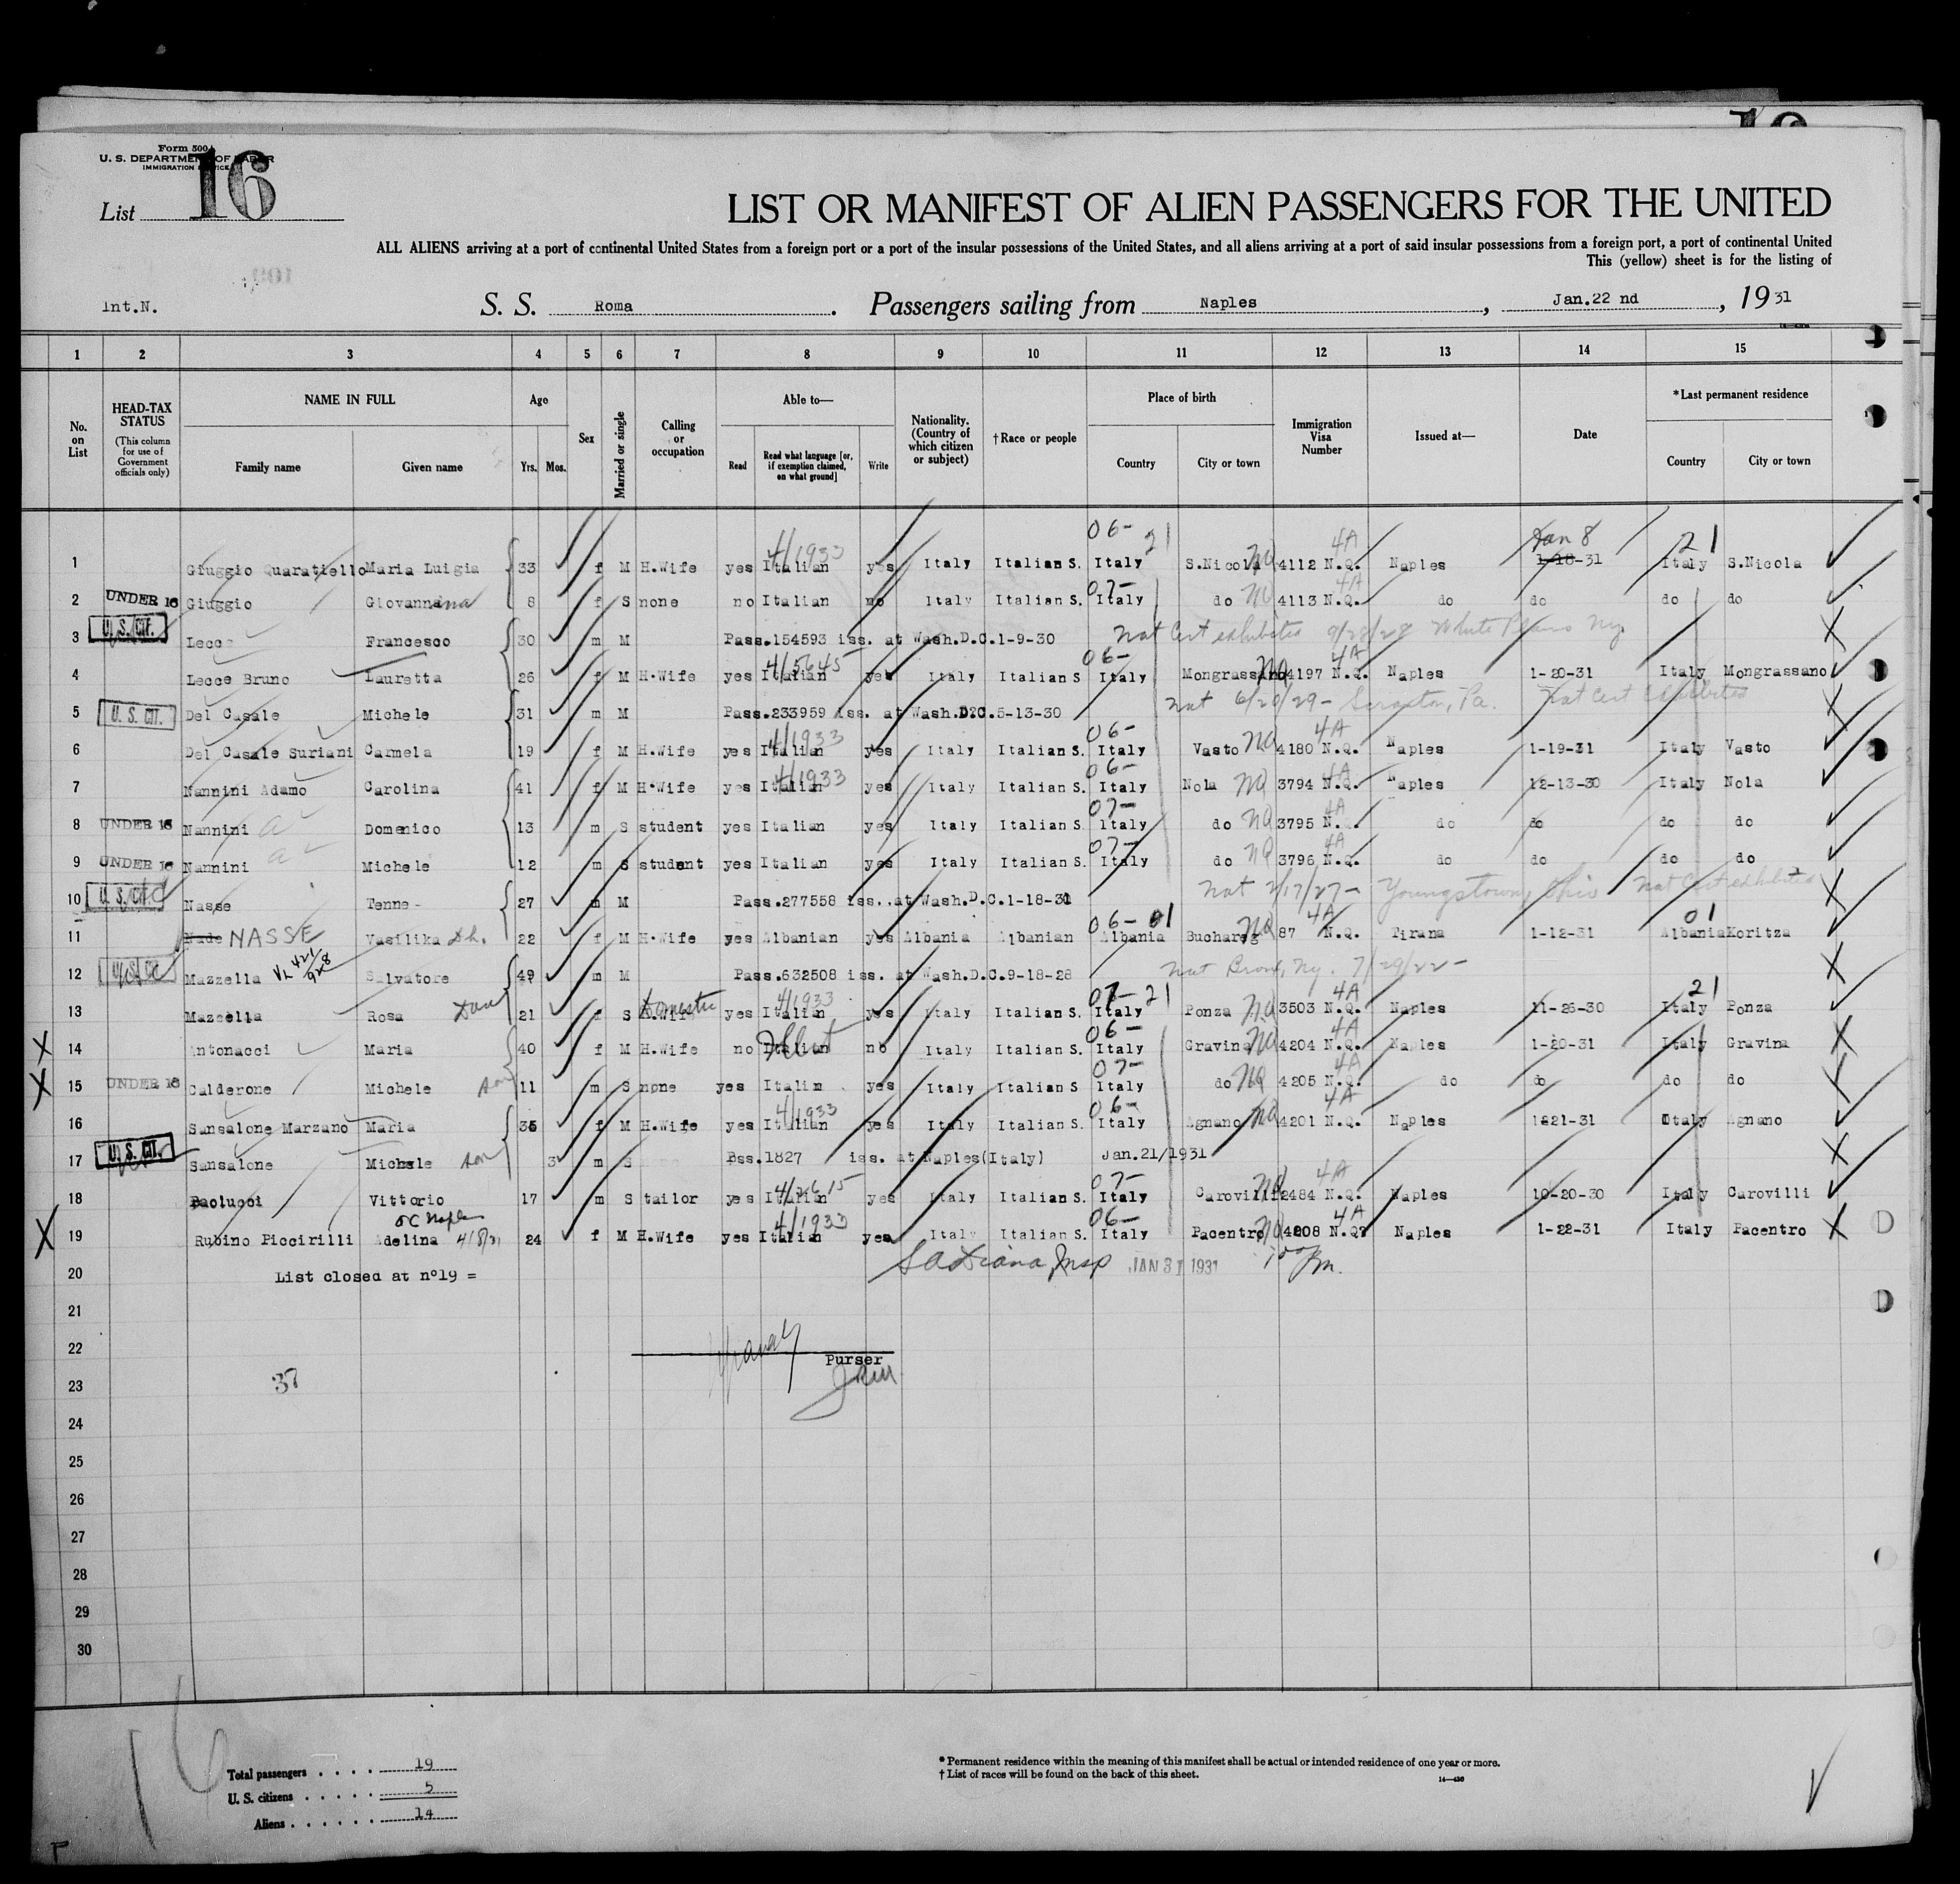 Form 500
U. S. DEPARTMENT OF LABOR
IMMIGRATION SERVICE
List 16
LIST OR MANIFEST OF ALIEN PASSENGERS FOR THE UNITED
ALL ALIENS arriving at a port of continental United States from a foreign port or a port of the insular possessions of the United States, and all aliens arriving at a port of said insular possessions from a foreign port, a port of continental United
This (yellow) sheet is for the listing of
Int.N. S. S. Roma. Passengers sailing from Naples, Jan.22 nd, 1931
1 2 3 4 5 6 7 8 9 10 11 12 13 14 15
No. on List HEAD-TAX STATUS (This column for use of Government officials only) NAME IN FULL Family name Given name Age Yrs. Mos. Sex Married or single Calling or occupation Able to— Read Read what language [or, if exemption claimed, on what ground] Write Nationality. (Country of which citizen or subject) †Race or people Place of birth Country City or town Immigration Visa Number Issued at— Date *Last permanent residence Country City or town
06- 21 4A Jan 8 21
1 Giuggio Quaratiello Maria Luigia 33 f M H.Wife yes Italian 4/1933 yes Italy Italian S. Italy S.Nicola no 4112 N.Q. Naples 1-18-31 Italy S.Nicola
07- 4A
2 UNDER 16 Giuggio Giovannina 8 f S none no Italian no Italy Italian S. Italy do no 4113 N.Q. do do do do
3 U. S. CIT. Lecce Francesco 30 m M Pass.154593 iss. at Wash.D.C.1-9-30 Nat Cert exhibited 9/28/28 White Plains Ny.
06- 4A
4 Lecce Bruno Lauretta 26 f M H.Wife yes Italian 4/5645 yes Italy Italian S Italy Mongrassano no 4197 N.Q. Naples 1-20-31 Italy Mongrassano
5 U. S. CIT. Del Casale Michele 31 m M Pass.233959 iss. at Wash.D.C.5-13-30 Nat 6/20/29- Scranton, Pa. Nat Cert Exhibited
06- 4A
6 Del Casale Suriani Carmela 19 f M H.Wife yes Italian 4/1933 yes Italy Italian S. Italy Vasto no 4180 N.Q. Naples 1-19-31 Italy Vasto
06- 4A
7 Nannini Adamo Carolina 41 f M H.Wife yes Italian 4/1933 yes Italy Italian S. Italy Nola no 3794 N.Q. Naples 12-13-30 Italy Nola
07- 4A
8 UNDER 16 Nannini a Domenico 13 m S student yes Italian yes Italy Italian S. Italy do no 3795 N. do do do do
07- 4A
9 UNDER 16 Nannini a Michele 12 m S student yes Italian yes Italy Italian S. Italy do no 3796 N.Q. do do do do
10 U. S. CIT. Nasse Tenne 27 m M Pass.277558 iss. at Wash.D.C.1-18-30 Nat 2/17/27- Youngstown, Ohio Nat Cert exhibited
06- 01 4A 01
11 Nade NASSE Vasilika 22 f M H.Wife yes Albanian yes Albania Albanian Albania Buchareg no 87 N.Q. Tirana 1-12-31 Albania Koritza
12 Mazzella VL 421/928 Salvatore 49 m M Pass.632508 iss. at Wash.D.C.9-18-28 Nat Bronx, Ny. 7/29/22-
07- 21 4A 21
13 Mazzella Rosa Dau 21 f S H.Wife Domestic yes Italian 4/1933 yes Italy Italian S. Italy Ponza no 3503 N.Q. Naples 11-26-30 Italy Ponza
06- 4A
X 14 Antonacci Maria 40 f M H.Wife no Italian no Italy Italian S. Italy Gravina no 4204 N.Q. Naples 1-20-31 Italy Gravina
07- 4A
X 15 UNDER 16 Calderone Michele son 11 m S none yes Italin yes Italy Italian S Italy do no 4205 N.Q. do do do do
06- 4A
16 Sansalone Marzano Maria 35 f M H.Wife yes Italian 4/1933 yes Italy Italian S. Italy Agnano no 4201 N.Q. Naples 1-21-31 Italy Agnano
17 U. S. CIT. Sansalone Michele son 3 m S Pss.1827 iss. at Naples(Italy) Jan.21/1931
07- 4A
18 Paolucci Vittorio 17 m S tailor yes Italian yes Italy Italian S. Italy Carovilli no 2484 N.Q. Naples 10-20-30 Italy Carovilli
06- 4A
X 19 Rubino Piccirilli Adelina 24 f M H.Wife yes Italian 4/1933 yes Italy Italian S. Italy Pacentro no 4208 N.Q. Naples 1-22-31 Italy Pacentro
20 List closed at n°19 = JAN 31 1931
21
22
Purser
23 37
24
25
26
27
28
29
30
16
Total passengers . . . . 19
U. S. citizens . . . . . 5
Aliens . . . . . . 14
* Permanent residence within the meaning of this manifest shall be actual or intended residence of one year or more.
† List of races will be found on the back of this sheet.